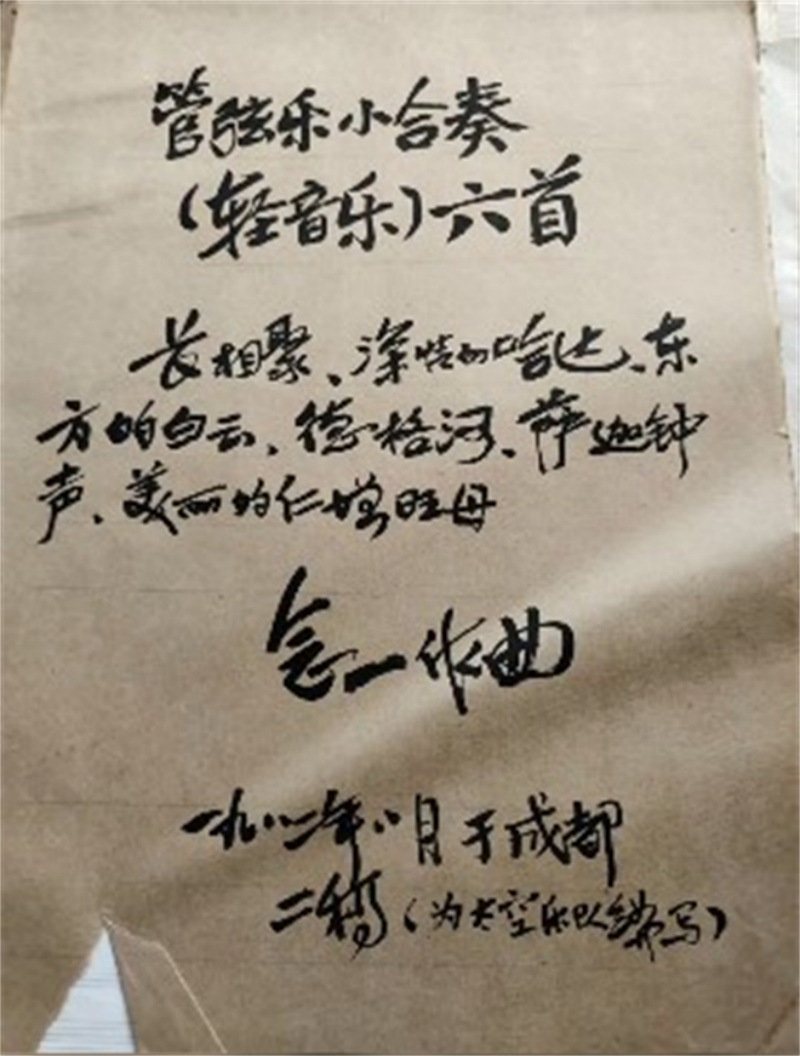 管弦乐小合奏
(轻音乐)六首
长相聚、深情的哈达、东
方的白云、德格河、萨迦钟
声、美丽的仁增旺母
念一作曲
一九八二年八月于成都
二稿(为太空乐队编写)